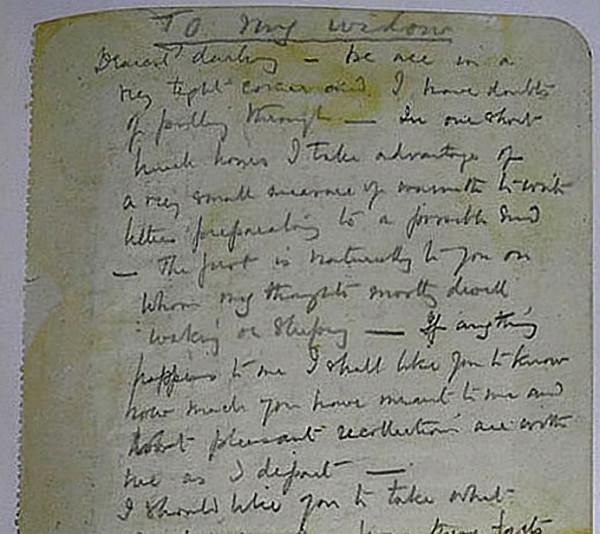 To my widow
Dearest darling – we are in a
very tight corner and I have doubts
of pulling through – In our short
lunch hours I take advantage of
a very small measure of warmth to write
letters preparatory to a possible end
– The first is naturally to you on
whom my thoughts mostly dwell
waking or sleeping – If anything
happens to me I shall like you to know
how much you have meant to me and
that pleasant recollections are with
me as I depart –
I should like you to take what
these facts